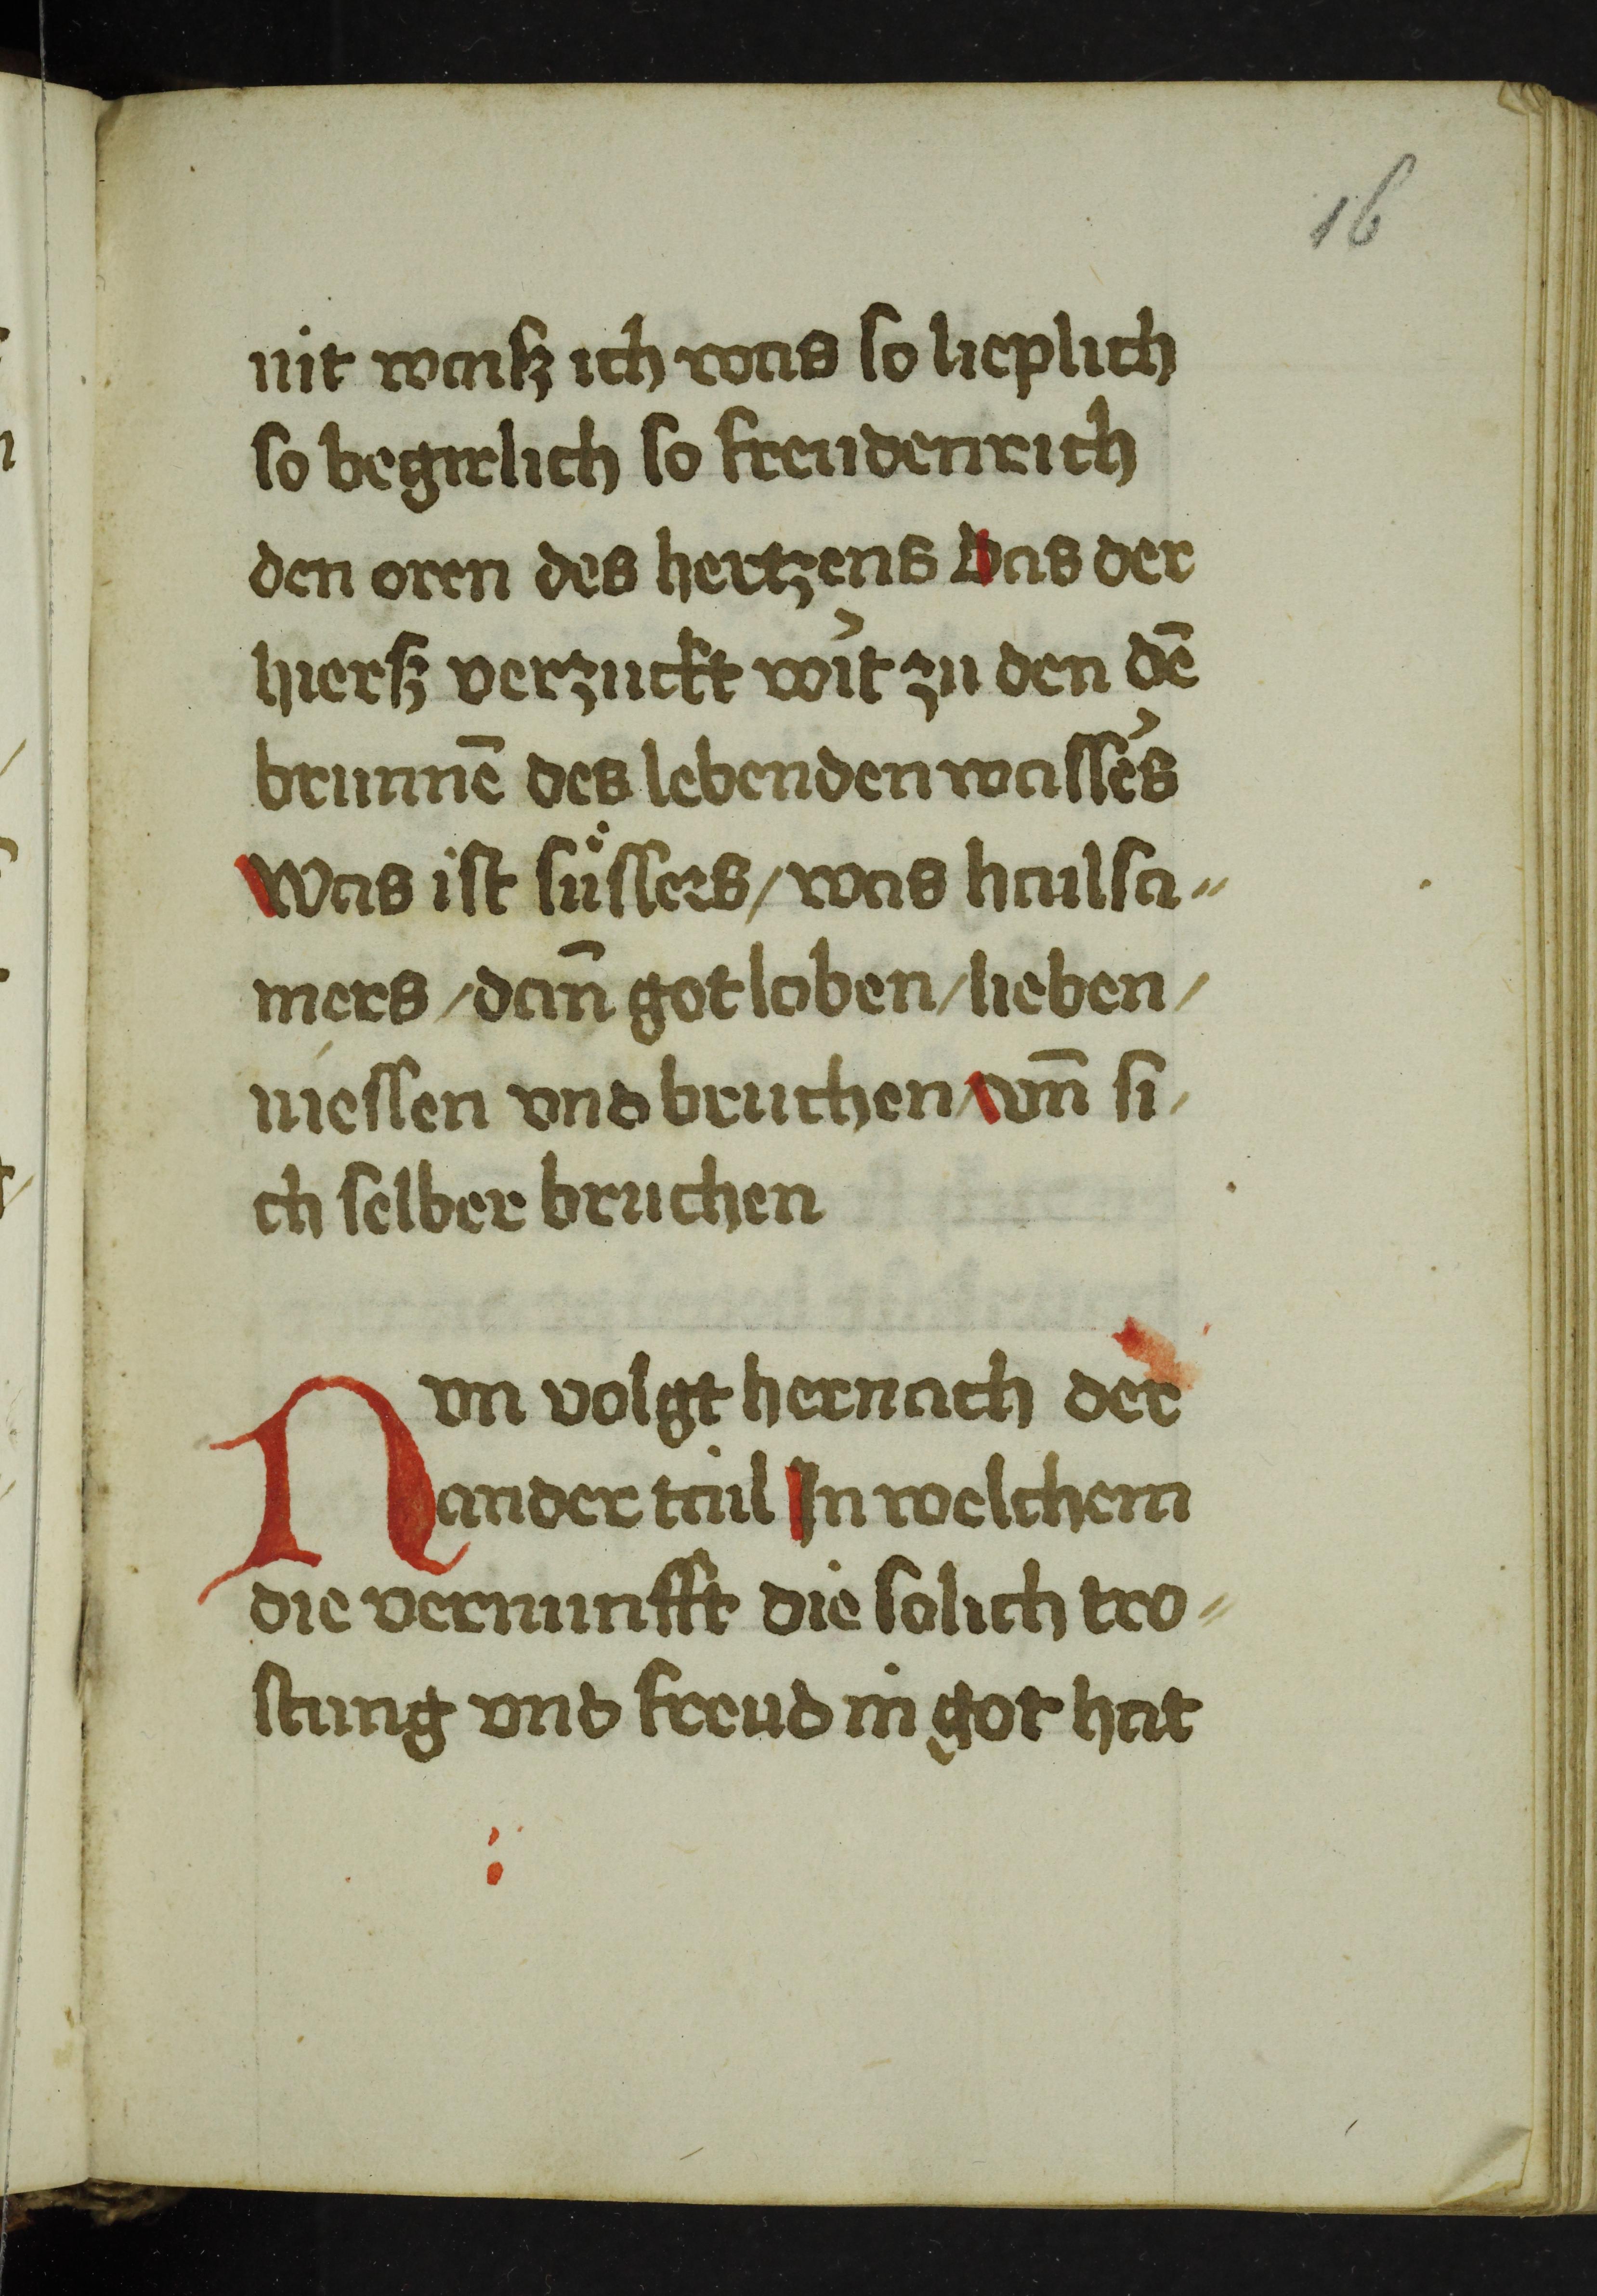 16
nit waisz ich was so lieplich
so begirlich so freudenrich
den oren des hertzens Das der
hiersz verzuckt wi͛t zu den dē
brunnē des lebenden wasse͛s
Was ist süssers / was hailsa〃
mers / dan̄ got loben / lieben /
niessen vnd bruchen / vn̄ si /
ch selber bruchen
Nvn volgt hernach der
ander tail In welchem
die vernunfft die solich tro〃
stung vnd freud in got hat